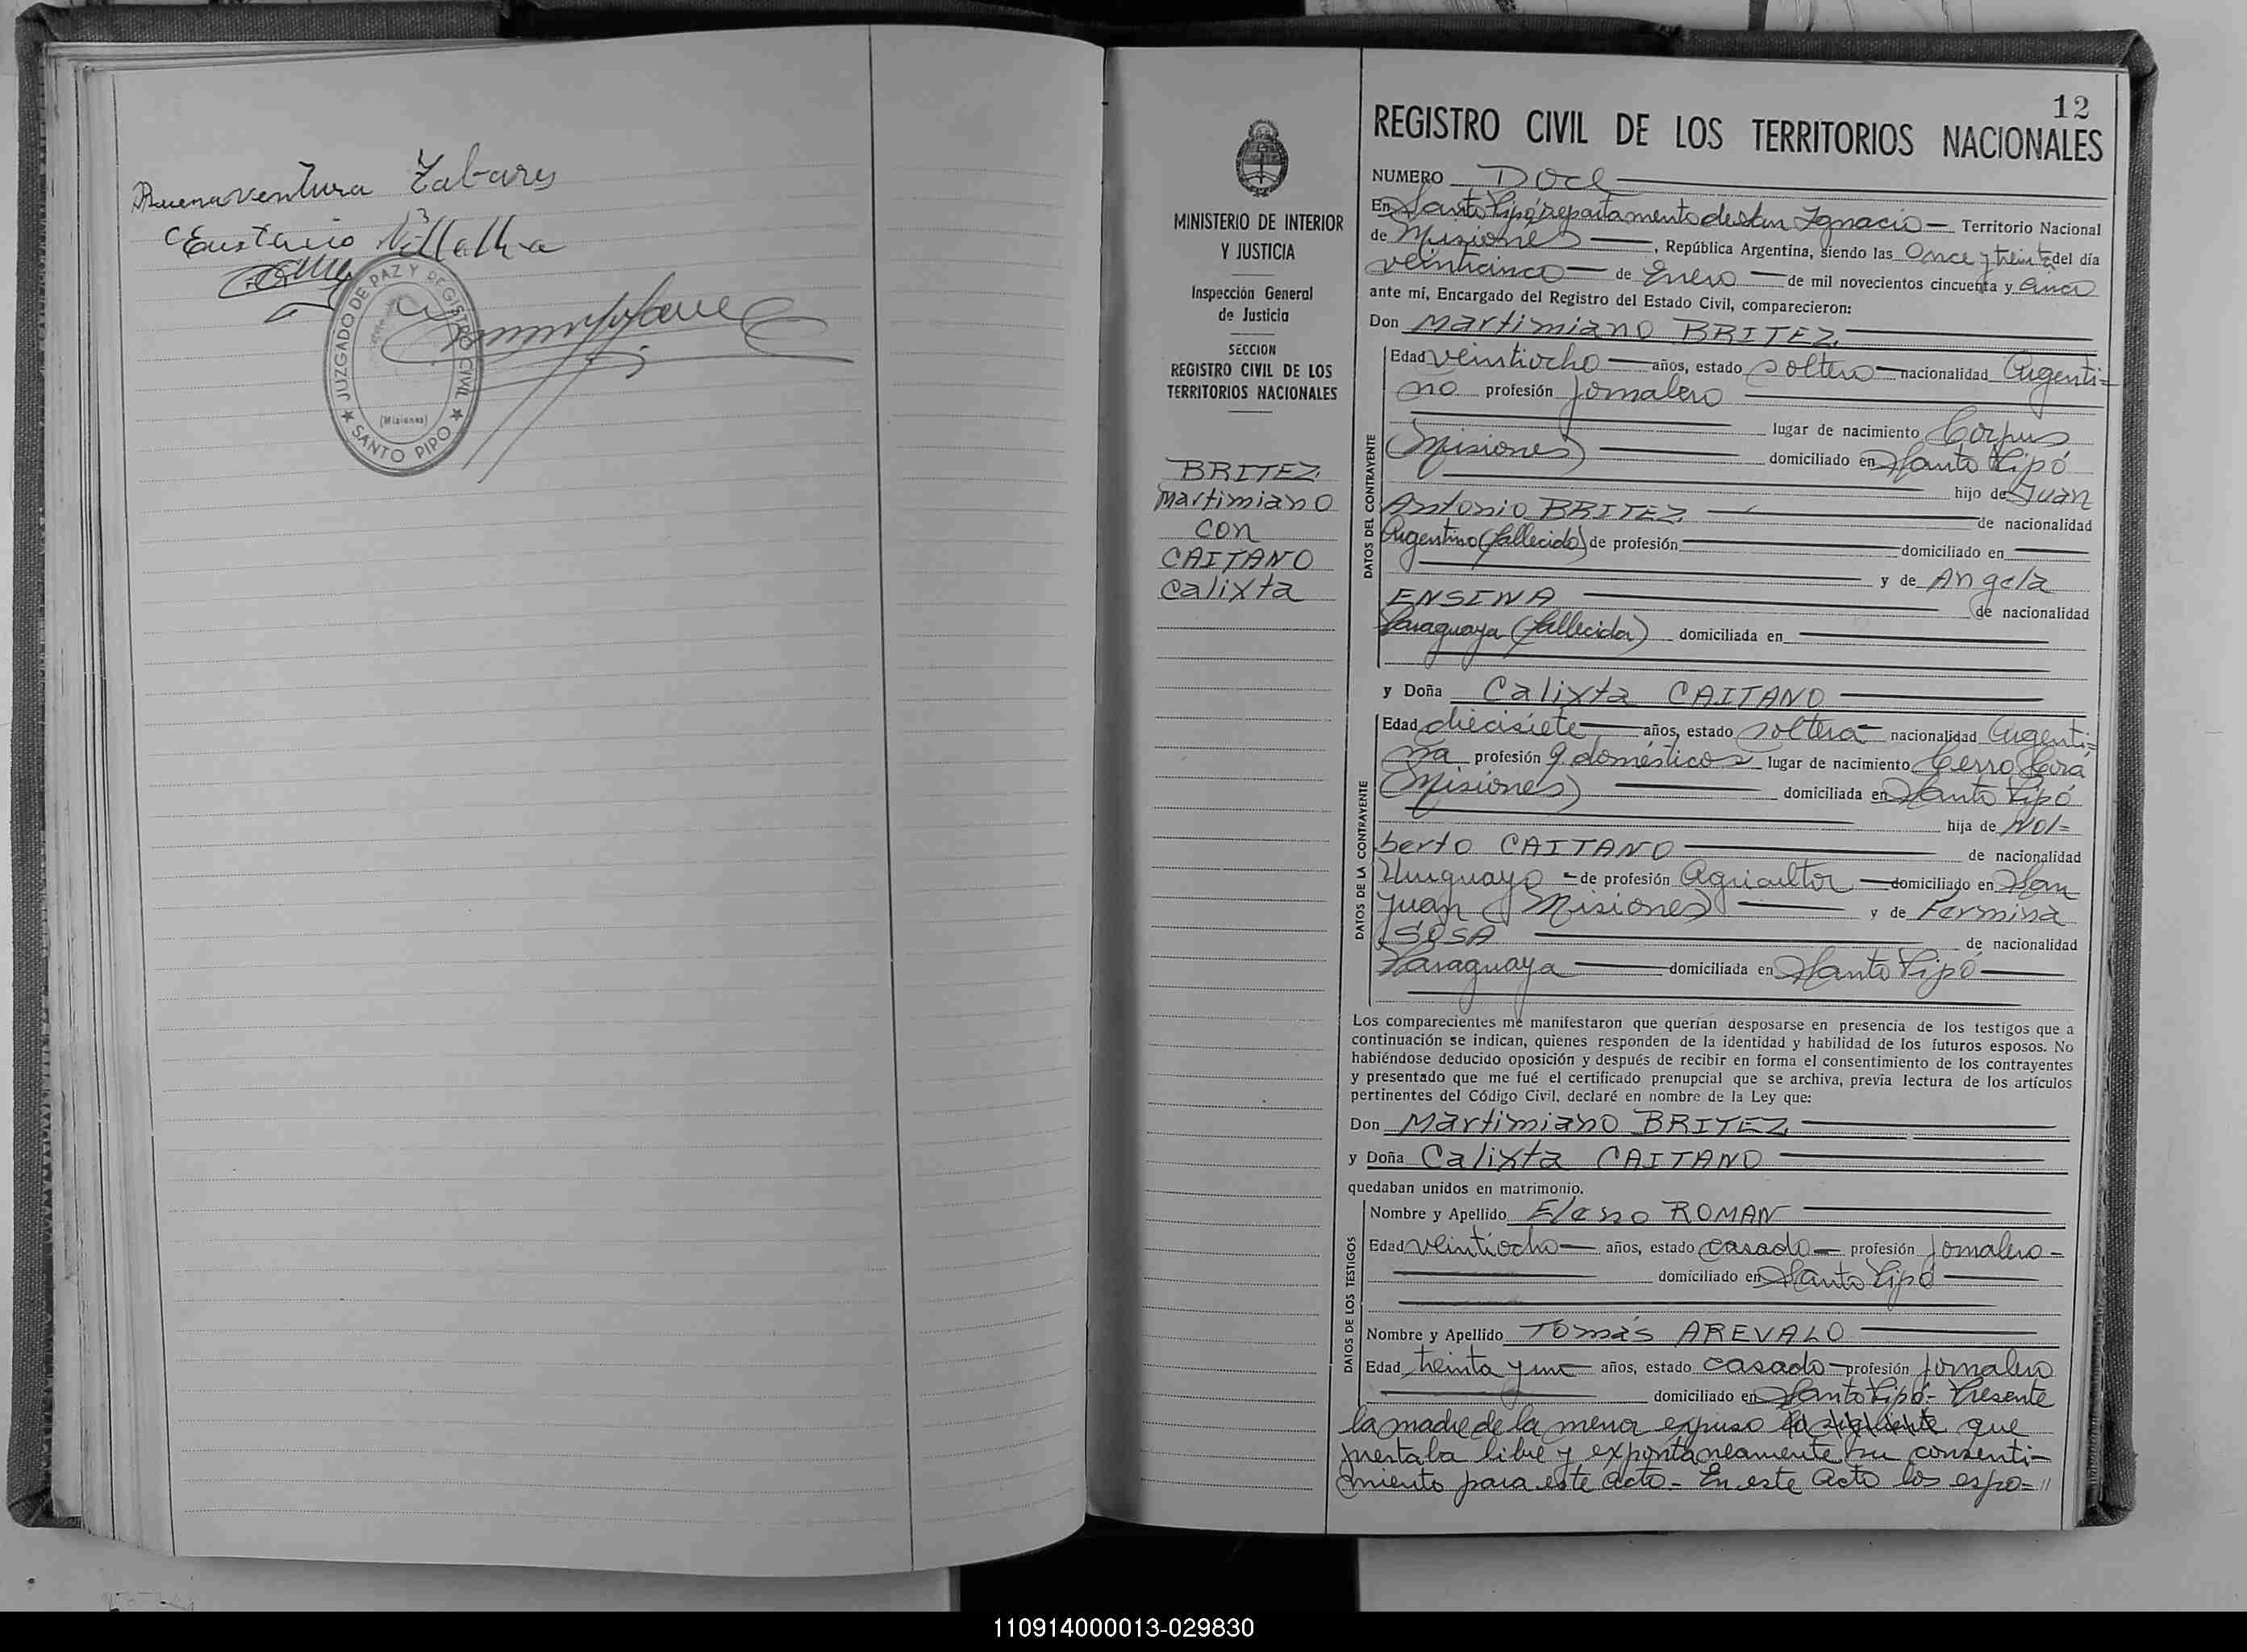 Buenaventura Zabares
Eustacio Villalba
JUZGADO DE PAZ Y REGISTRO CIVIL
(Misiones)
★ SANTO PIPO ★
MINISTERIO DE INTERIOR
Y JUSTICIA
Inspección General
de Justicia
SECCION
REGISTRO CIVIL DE LOS
TERRITORIOS NACIONALES
BRITEZ
Martimiano
con
CAITANO
Calixta
12
REGISTRO CIVIL DE LOS TERRITORIOS NACIONALES
NUMERO Doce
En Santo Pipó, Departamento de San Ignacio Territorio Nacional
de Misiones, República Argentina, siendo las Once y treinta del día
veinticinco de Enero de mil novecientos cincuenta y Cinco
ante mí, Encargado del Registro del Estado Civil, comparecieron:
Don Martimiano BRITEZ
DATOS DEL CONTRAYENTE
Edad veintiocho años, estado soltero nacionalidad Argenti=
no profesión Jornalero
lugar de nacimiento Corpus
(Misiones) domiciliado en Santo Pipó
hijo de Juan
Antonio BRITEZ de nacionalidad
Argentino (fallecido) de profesión domiciliado en
y de Angela
ENSINA de nacionalidad
Paraguaya (fallecida) domiciliada en
y Doña Calixta CAITANO
DATOS DE LA CONTRAYENTE
Edad diecisiete años, estado soltera nacionalidad Argenti=
na profesión q. domésticos lugar de nacimiento Cerro Corá
(Misiones) domiciliada en Santo Pipó
hija de Nol=
berto CAITANO de nacionalidad
Uruguayo de profesión Agricultor domiciliado en San
Juan (Misiones) y de Fermina
SOSA de nacionalidad
Paraguaya domiciliada en Santo Pipó
Los comparecientes me manifestaron que querían desposarse en presencia de los testigos que a
continuación se indican, quienes responden de la identidad y habilidad de los futuros esposos. No
habiéndose deducido oposición y después de recibir en forma el consentimiento de los contrayentes
y presentado que me fué el certificado prenupcial que se archiva, previa lectura de los artículos
pertinentes del Código Civil, declaré en nombre de la Ley que:
Don Martimiano BRITEZ
y Doña Calixta CAITANO
quedaban unidos en matrimonio.
DATOS DE LOS TESTIGOS
Nombre y Apellido Eleno ROMAN
Edad veintiocho años, estado casado profesión Jornalero
domiciliado en Santo Pipó
Nombre y Apellido Tomás AREVALO
Edad treinta y un años, estado casado profesión jornalero
domiciliado en Santo Pipó- Presente
la madre de la menor expuso lo siguiente que
prestaba libre y expontaneamente su consenti-
miento para este acto- En este acto los espo="
110914000013-029830